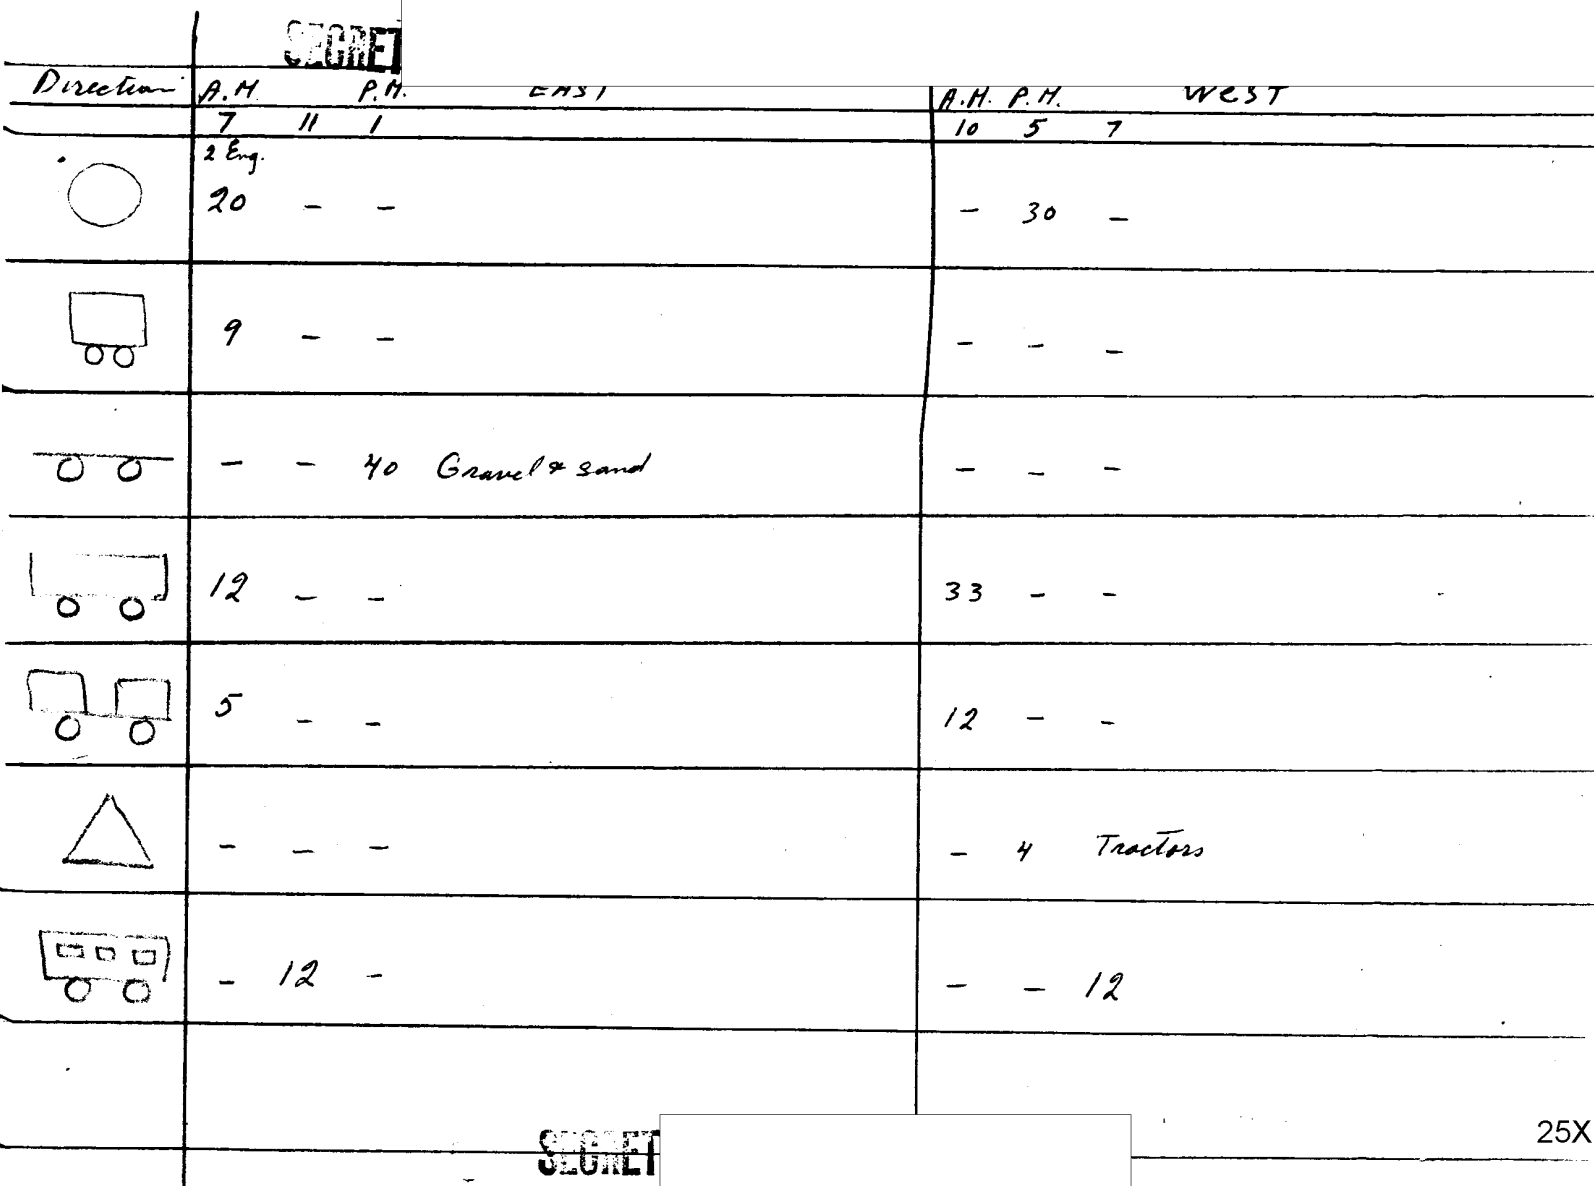 SECRET
Direction A.M. P.M. EAST A.M. P.M. WEST
7 11 1 10 5 7
2 Eng.
20 - - - 30 -
9 - - - - -
- - 40 Gravel & sand - - -
12 - - 33 - -
5 - - 12 - -
- - - - 4 Tractors
- 12 - - - 12
SECRET
25X